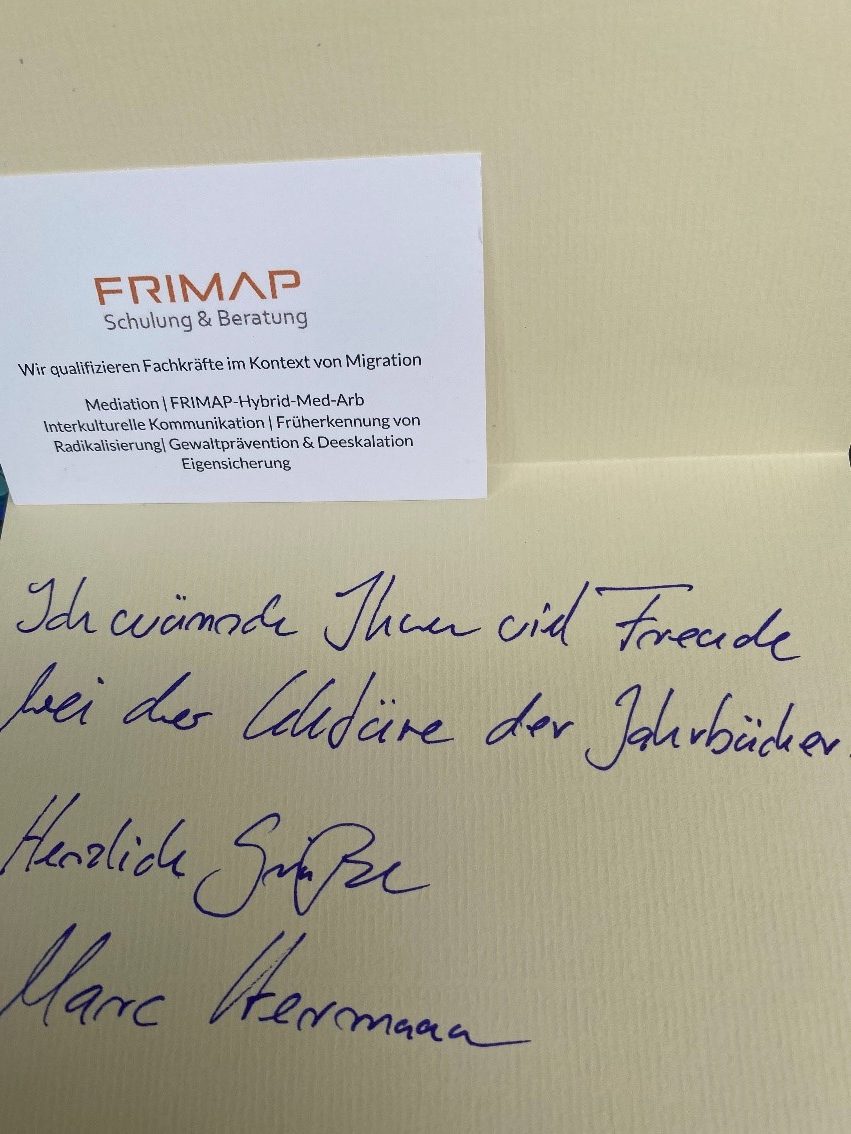 FRIMAP
Schulung & Beratung
Wir qualifizieren Fachkräfte im Kontext von Migration
Mediation | FRIMAP-Hybrid-Med-Arb
Interkulturelle Kommunikation | Früherkennung von
Radikalisierung| Gewaltprävention & Deeskalation
Eigensicherung
Ich wünsche Ihnen viel Freude
bei der Lektüre der Jahrbücher.
Herzliche Grüße
Marc Herrmann